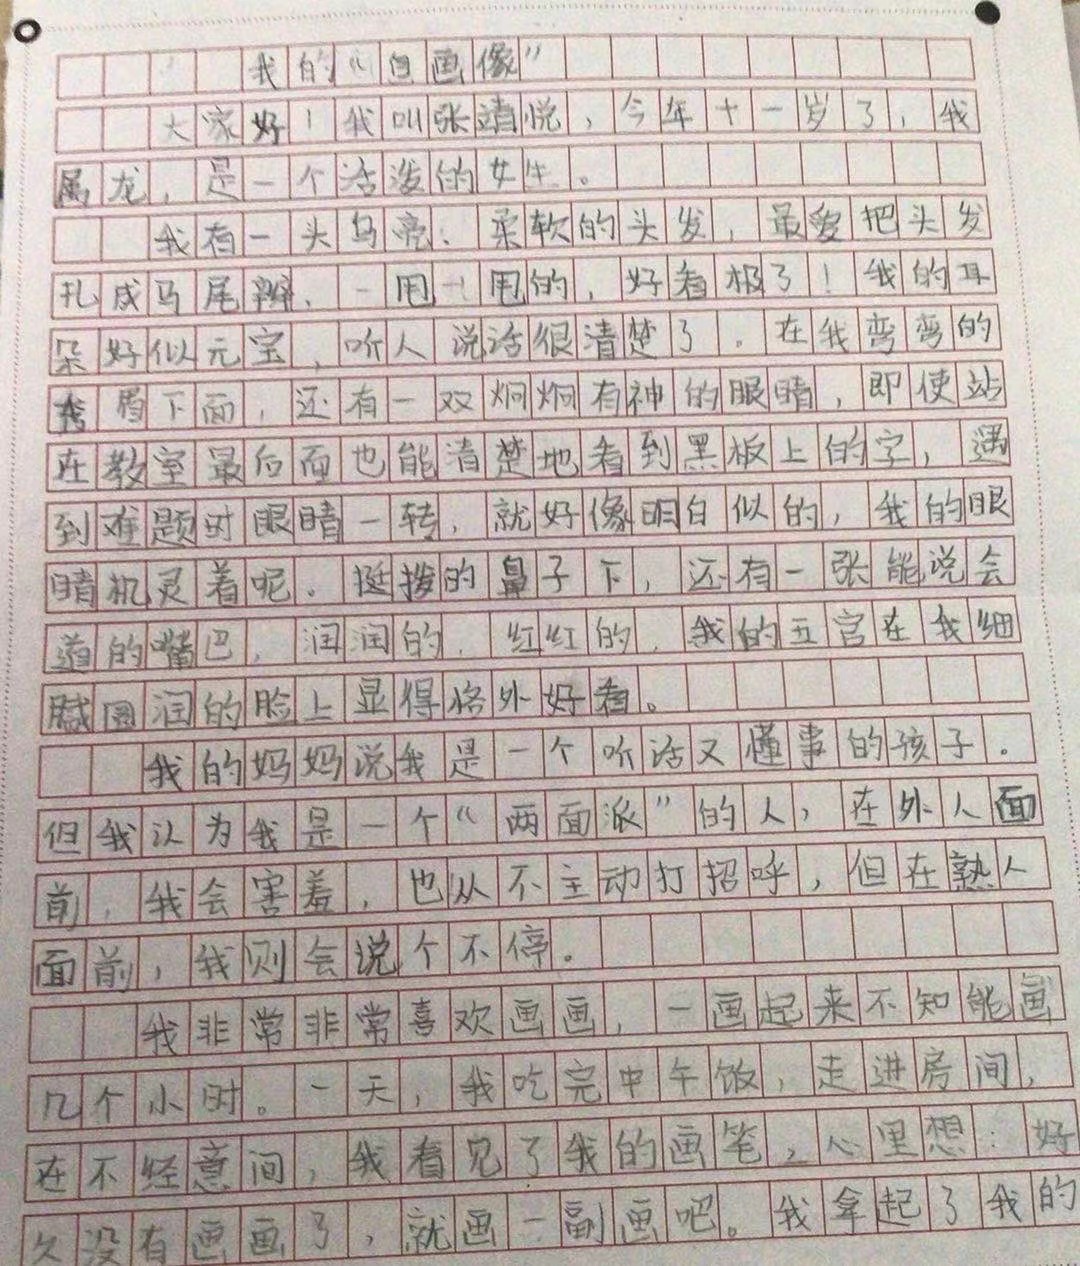 我的“自画像”
大家好！我叫张靖悦，今年十一岁了，我
属龙，是一个活泼的女生。
我有一头乌亮、柔软的头发，最爱把头发
扎成马尾辫，一甩一甩的，好看极了！我的耳
朵好似元宝，听人说话很清楚了。在我弯弯的
眉下面，还有一双炯炯有神的眼睛，即使站
在教室最后面也能清楚地看到黑板上的字，遇
到难题时眼睛一转，就好像明白似的，我的眼
睛机灵着呢。挺拨的鼻子下，还有一张能说会
道的嘴巴，润润的，红红的，我的五官在我细
腻圆润的脸上显得格外好看。
我的妈妈说我是一个听话又懂事的孩子。
但我认为我是一个“两面派”的人，在外人面
前，我会害羞，也从不主动打招呼，但在熟人
面前，我则会说个不停。
我非常非常喜欢画画，一画起来不知能画
几个小时。一天，我吃完中午饭，走进房间，
在不经意间，我看见了我的画笔，心里想：好
久没有画画了，就画一副画吧。我拿起了我的